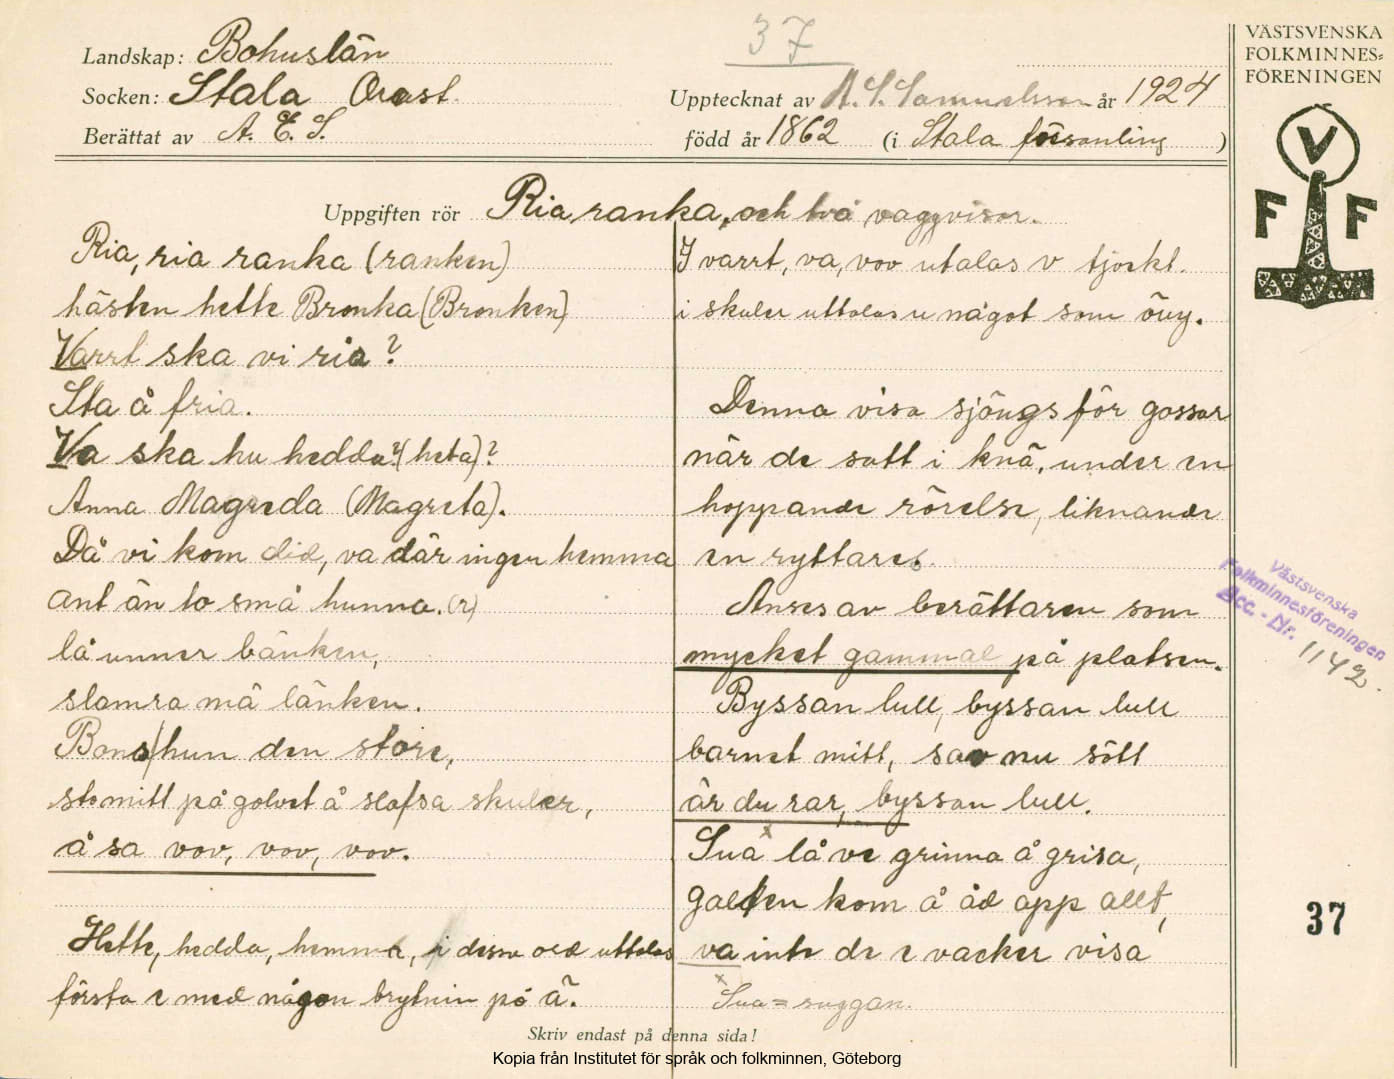 37
Landskap: Bohuslän
Socken: Stala Orust.
Upptecknat av A. S. Samuelsson år 1924
Berättat av A. E. S.
född år 1862 (i Stala församling)
Uppgiften rör Ria, ranka, och två vaggvisor.
Ria, ria ranka (ranken)
hästen hette Bronka (Bronken)
Varrt ska vi ria?
Sta å fria.
Va ska hu hedda? (heta)?
Anna Magreda (Magreta).
Då vi kom did, va där ingen hemma
ant än to små hunna. (r)
lå unner bänken,
slamra mä länken.
Bons/hun den store,
sto mitt på golvet å slafsa skuler,
å sa vov, vov, vov.
Hette, hedda, hemma, i dessa ord uttalas
första e med någon brytnin på ä.
I varrt, va, vov utalas v tjockt.
i skuler uttalas u något som öuy.
Denna visa sjöngs för gossar
när de satt i knä, under en
hoppande rörelse, liknande
en ryttare.
Anses av berättaren som
mycket gammal på platsen.
Byssan lull, byssan lull
barnet mitt, sov nu sött
är du rar, byssan lull.
Sua x lå ve grinna å grisa,
galten kom å åd opp allt,
va inte de e vacker visa
x Sua = suggan.
Skriv endast på denna sida!
Kopia från Institutet för språk och folkminnen, Göteborg
VÄSTSVENSKA
FOLKMINNES=
FÖRENINGEN
V
F F
Västsvenska
Folkminnesföreningen
Acc. - Nr. 1142.
37